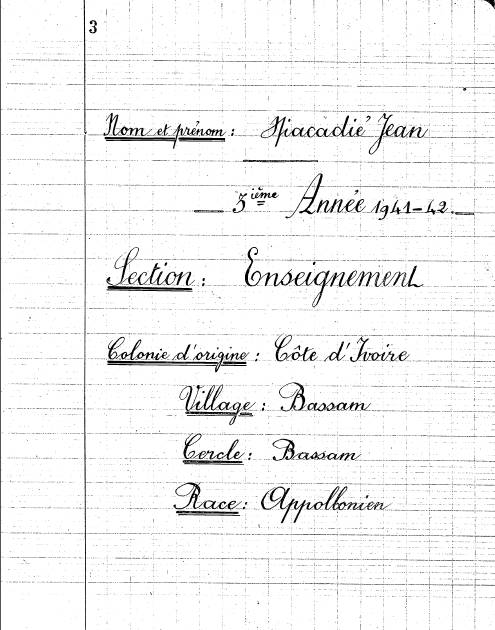 3
Nom et prénom : Niacadié Jean
3ième Année 1941-42.
Section : Enseignement
Colonie d'origine : Côte d'Ivoire
Village : Bassam
Cercle : Bassam
Race : Appollonien